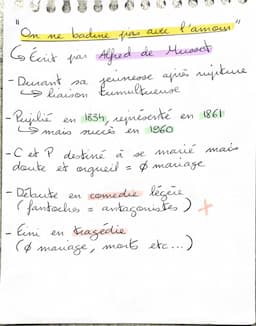 "On ne badine pas avec l'amour"
↳ Écrit par Alfred de Musset
- Durant sa jeunesse après rupture
↳ liaison tumultueuse
- Publié en 1834, représenté en 1861
↳ mais succès en 1960
- C et P destiné à se marié mais
doute et orgueil = ∅ mariage
- Débute en comédie légère
(fantoches = antagonistes) +
- Fini en tragédie
(∅ mariage, morts etc...)